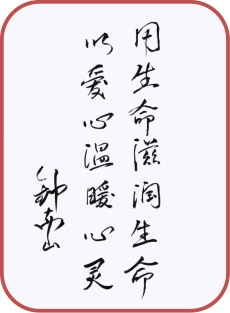 用生命滋润生命
以爱心温暖心灵
钟南山